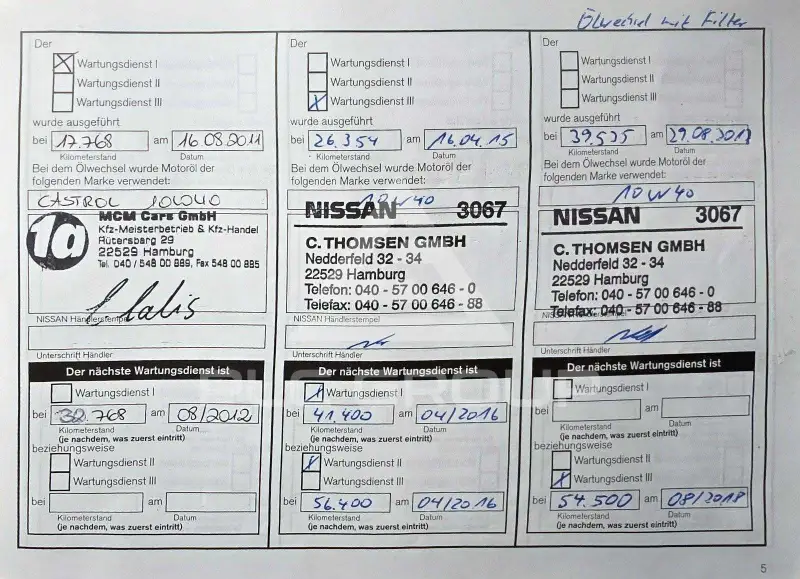 Ölwechsel mit Filter
Der
Wartungsdienst I
Wartungsdienst II
Wartungsdienst III
wurde ausgeführt
bei 17.768 am 16.08.2011
Kilometerstand Datum
Bei dem Ölwechsel wurde Motoröl der
folgenden Marke verwendet:
CASTROL 10W40
1a
MCM Cars GmbH
Kfz-Meisterbetrieb & Kfz-Handel
Rütersbarg 29
22529 Hamburg
Tel. 040 / 548 00 889, Fax 548 00 885
NISSAN Händlerstempel
Unterschrift Händler
Der nächste Wartungsdienst ist
Wartungsdienst I
bei 32.768 am 08/2012
Kilometerstand Datum
(je nachdem, was zuerst eintritt)
beziehungsweise
Wartungsdienst II
Wartungsdienst III
bei am
Kilometerstand Datum
(je nachdem, was zuerst eintritt)
Der
Wartungsdienst I
Wartungsdienst II
Wartungsdienst III
wurde ausgeführt
bei 26.354 am 16.04.15
Kilometerstand Datum
Bei dem Ölwechsel wurde Motoröl der
folgenden Marke verwendet:
10W40
NISSAN 3067
C. THOMSEN GMBH
Nedderfeld 32 - 34
22529 Hamburg
Telefon: 040 - 57 00 646 - 0
Telefax: 040 - 57 00 646 - 88
NISSAN Händlerstempel
Unterschrift Händler
Der nächste Wartungsdienst ist
Wartungsdienst I
bei 41.400 am 04/2016
Kilometerstand Datum
(je nachdem, was zuerst eintritt)
beziehungsweise
Wartungsdienst II
Wartungsdienst III
bei 56.400 am 04/2016
Kilometerstand Datum
(je nachdem, was zuerst eintritt)
Der
Wartungsdienst I
Wartungsdienst II
Wartungsdienst III
wurde ausgeführt
bei 39.525 am
Kilometerstand Datum
Bei dem Ölwechsel wurde Motoröl der
folgenden Marke verwendet:
10W40
NISSAN 3067
C. THOMSEN GMBH
Nedderfeld 32 - 34
22529 Hamburg
Telefon: 040 - 57 00 646 - 0
Telefax: 040 - 57 00 646 - 88
NISSAN Händlerstempel
Unterschrift Händler
Der nächste Wartungsdienst ist
Wartungsdienst I
bei am
Kilometerstand Datum
(je nachdem, was zuerst eintritt)
beziehungsweise
Wartungsdienst II
Wartungsdienst III
bei 54.500 am 08/2018
Kilometerstand Datum
(je nachdem, was zuerst eintritt)
5